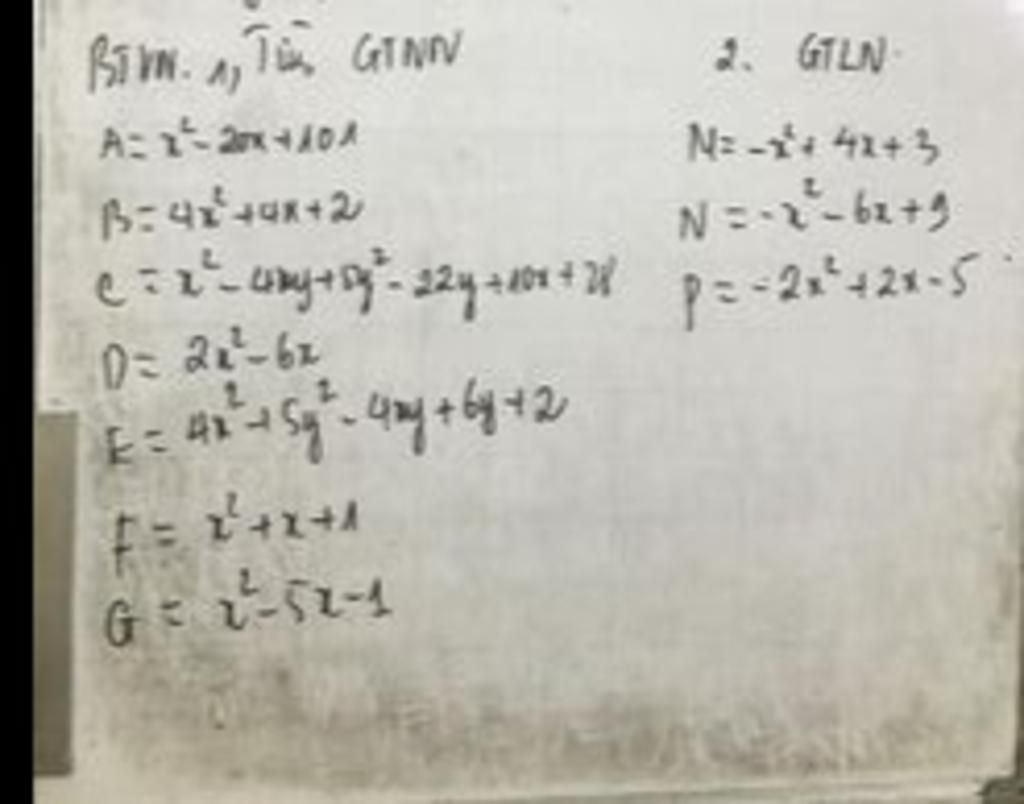 BTVN. 1, Tìm GTNN
A = x² - 20x + 101
B = 4x² + 4x + 2
C = x² - 4xy + 5y² - 22y + 10x + 28
D = 2x² - 6x
E = 4x² + 5y² - 4xy + 6y + 2
F = x² + x + 1
G = x² - 5x - 1
2. GTLN.
M = -x² + 4x + 3
N = -x² - 6x + 9
P = -2x² + 2x - 5